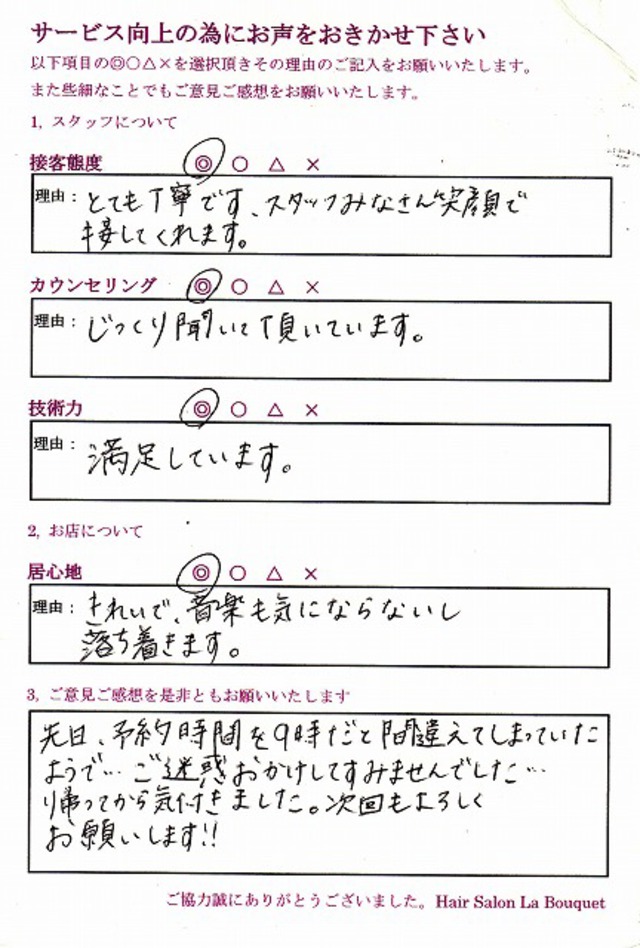 サービス向上の為にお声をおきかせ下さい
以下項目の◎○△×を選択頂きその理由のご記入をお願いいたします。
また些細なことでもご意見ご感想をお願いいたします。
1, スタッフについて
接客態度 ◎ ○ △ ×
理由： とても丁寧です、スタッフみなさん笑顔で
接してくれます。
カウンセリング ◎ ○ △ ×
理由： じっくり聞いて頂いています。
技術力 ◎ ○ △ ×
理由： 満足しています。
2, お店について
居心地 ◎ ○ △ ×
理由： きれいで、音楽も気にならないし
落ち着きます。
3, ご意見ご感想を是非ともお願いいたします
先日、予約時間を9時だと間違えてしまっていた
ようで… ご迷惑おかけしてすみませんでした…
帰ってから気付きました。次回もよろしく
お願いします!!
ご協力誠にありがとうございました。Hair Salon La Bouquet